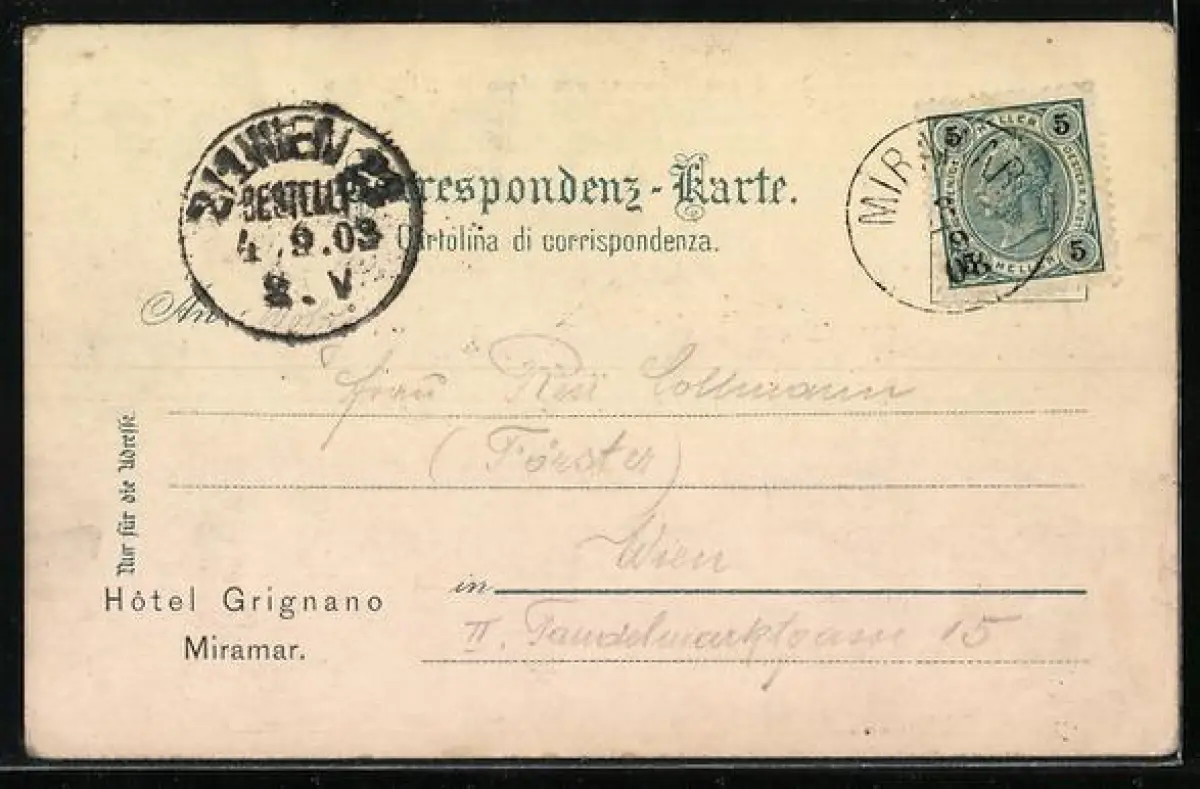 2/1 WIEN
BESTELLT
4.9.03
8.V
Correspondenz-Karte.
Cartolina di corrispondenza.
An
MIRAMAR
5 HELLER 5
HELLER 5
Frau Resi Collmann
(Förster)
Wien
in
II. Tandelmarktgasse 15
Nur für die Adresse.
Hôtel Grignano
Miramar.